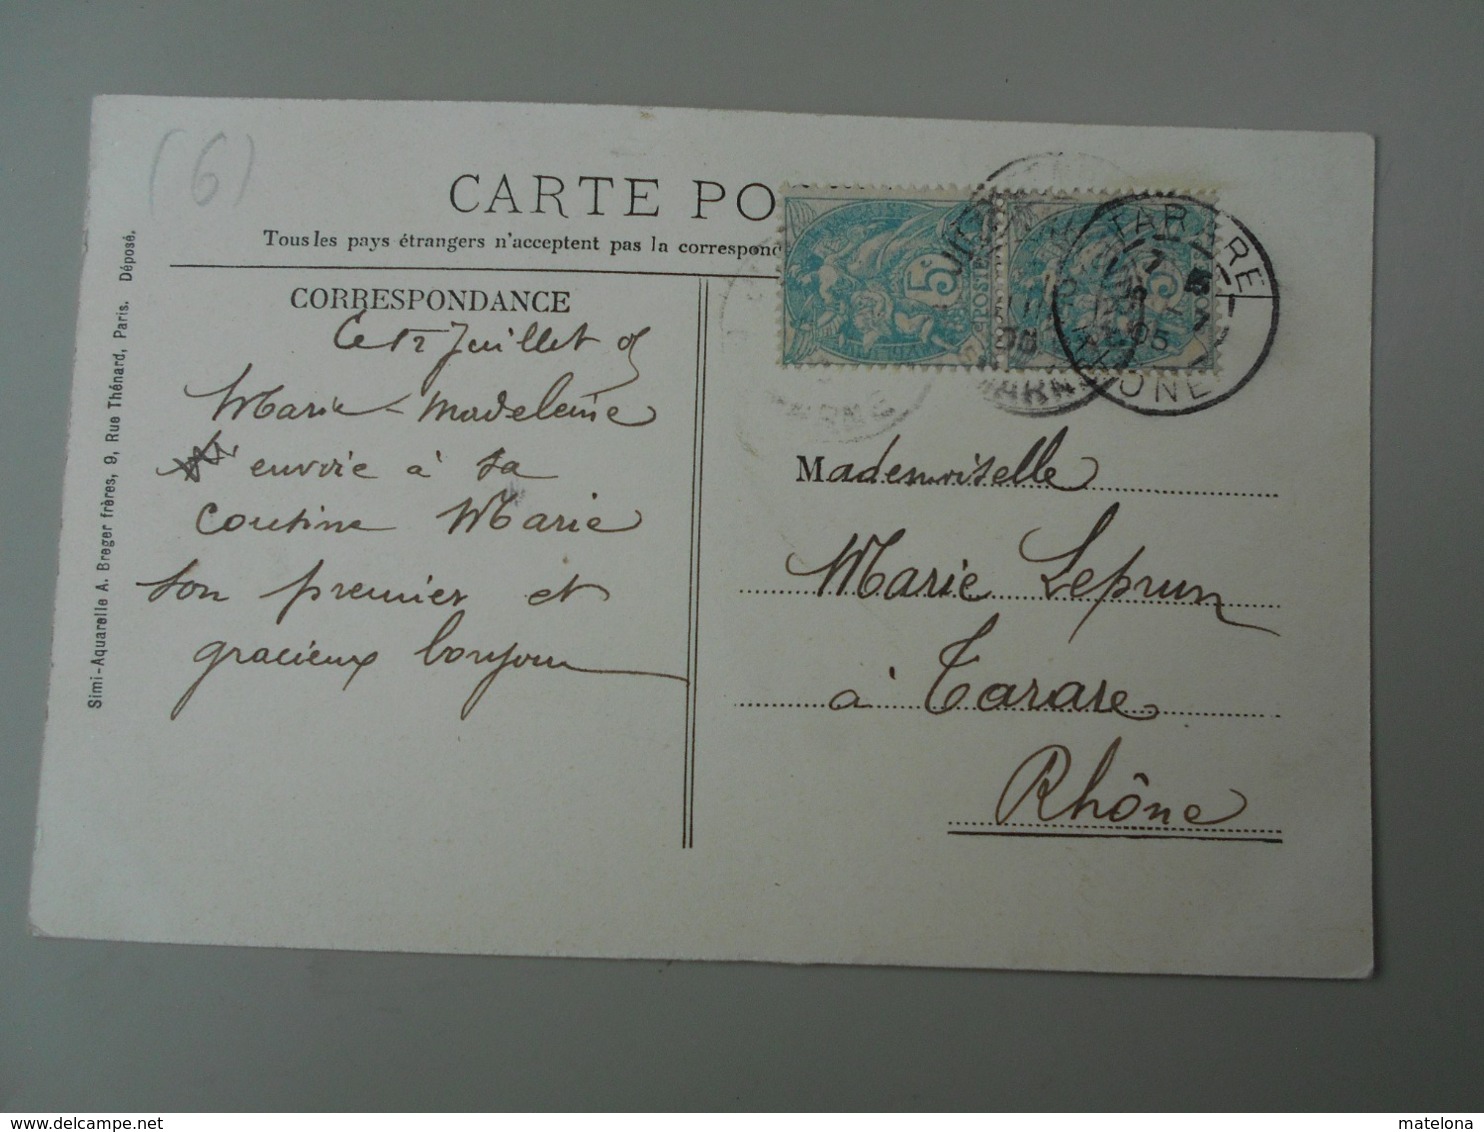 (6)
CARTE PO
Tous les pays étrangers n'acceptent pas la correspond
CORRESPONDANCE
Ce 12 Juillet 05
Marie-Madeleine
envoie à sa
cousine Marie
son premier et
gracieux bonjour
Simi-Aquarelle A. Breger frères, 9, Rue Thénard, Paris. Déposé.
5c
POSTE
5
TARARE
RHONE
05
MARNE
MARNE
Mademoiselle
Marie Leprun
à Tarare
Rhône
delcampe.net
matelona